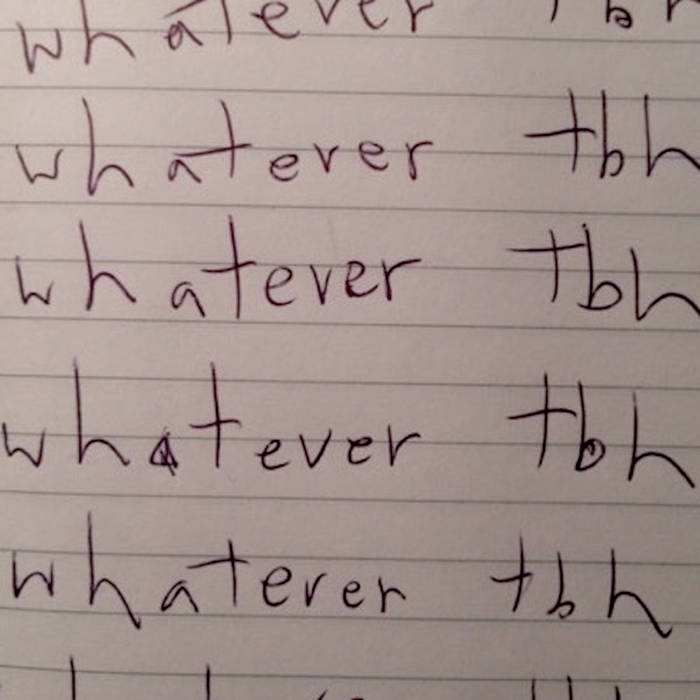 whatever tbh
whatever tbh
whatever tbh
whatever tbh
whatever tbh